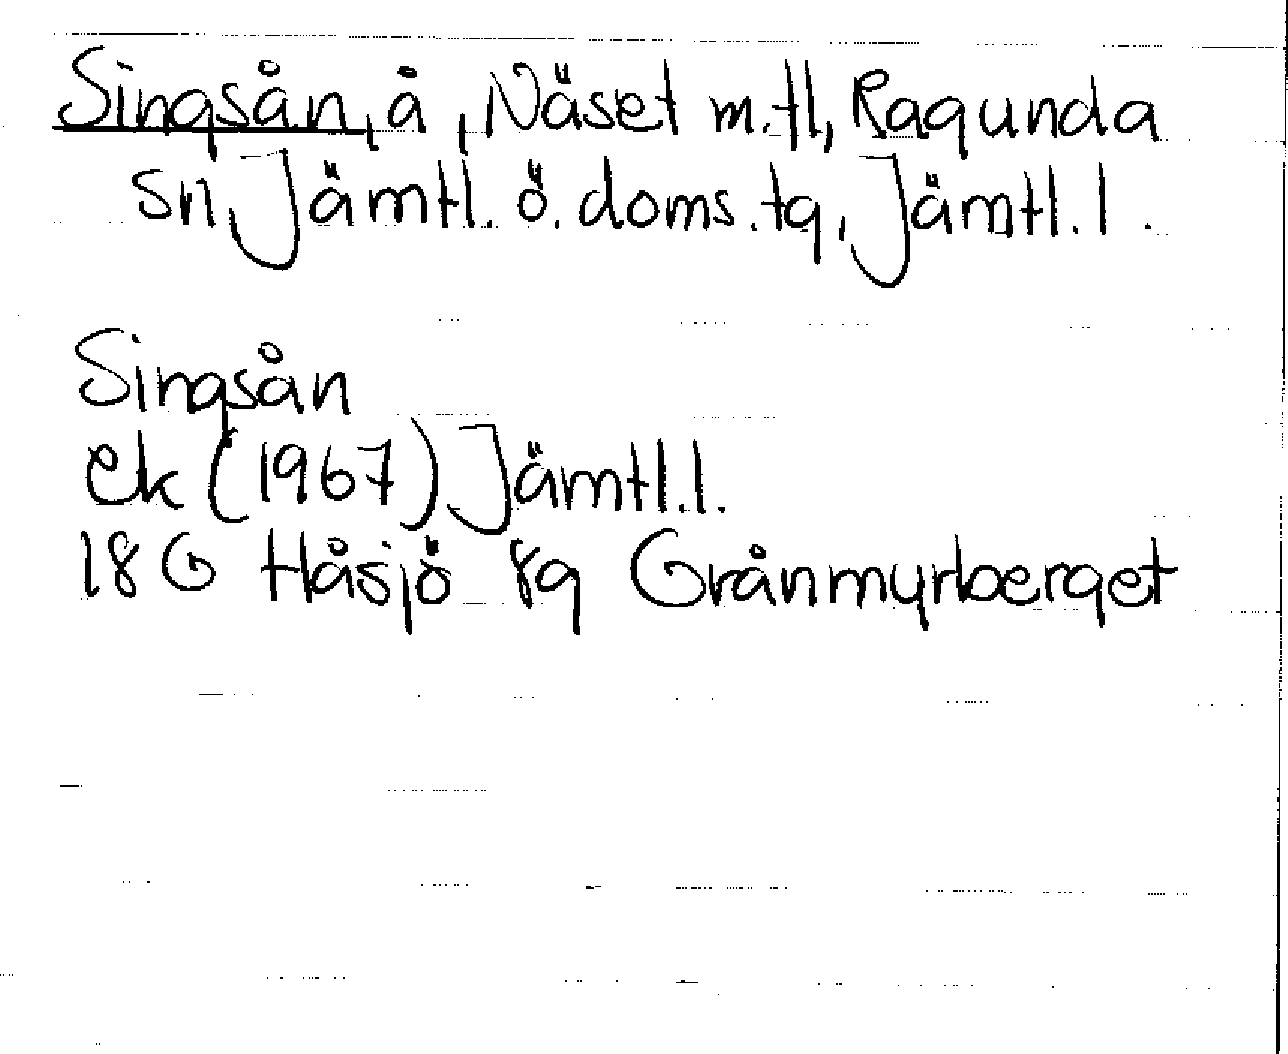 Singsån, å, Näset m.fl, Ragunda
sn, Jämtl. ö. doms.tg, Jämtl. l.
Singsån
ek (1967) Jämtl.l.
18G Håsjö 8g Grånmyrberget